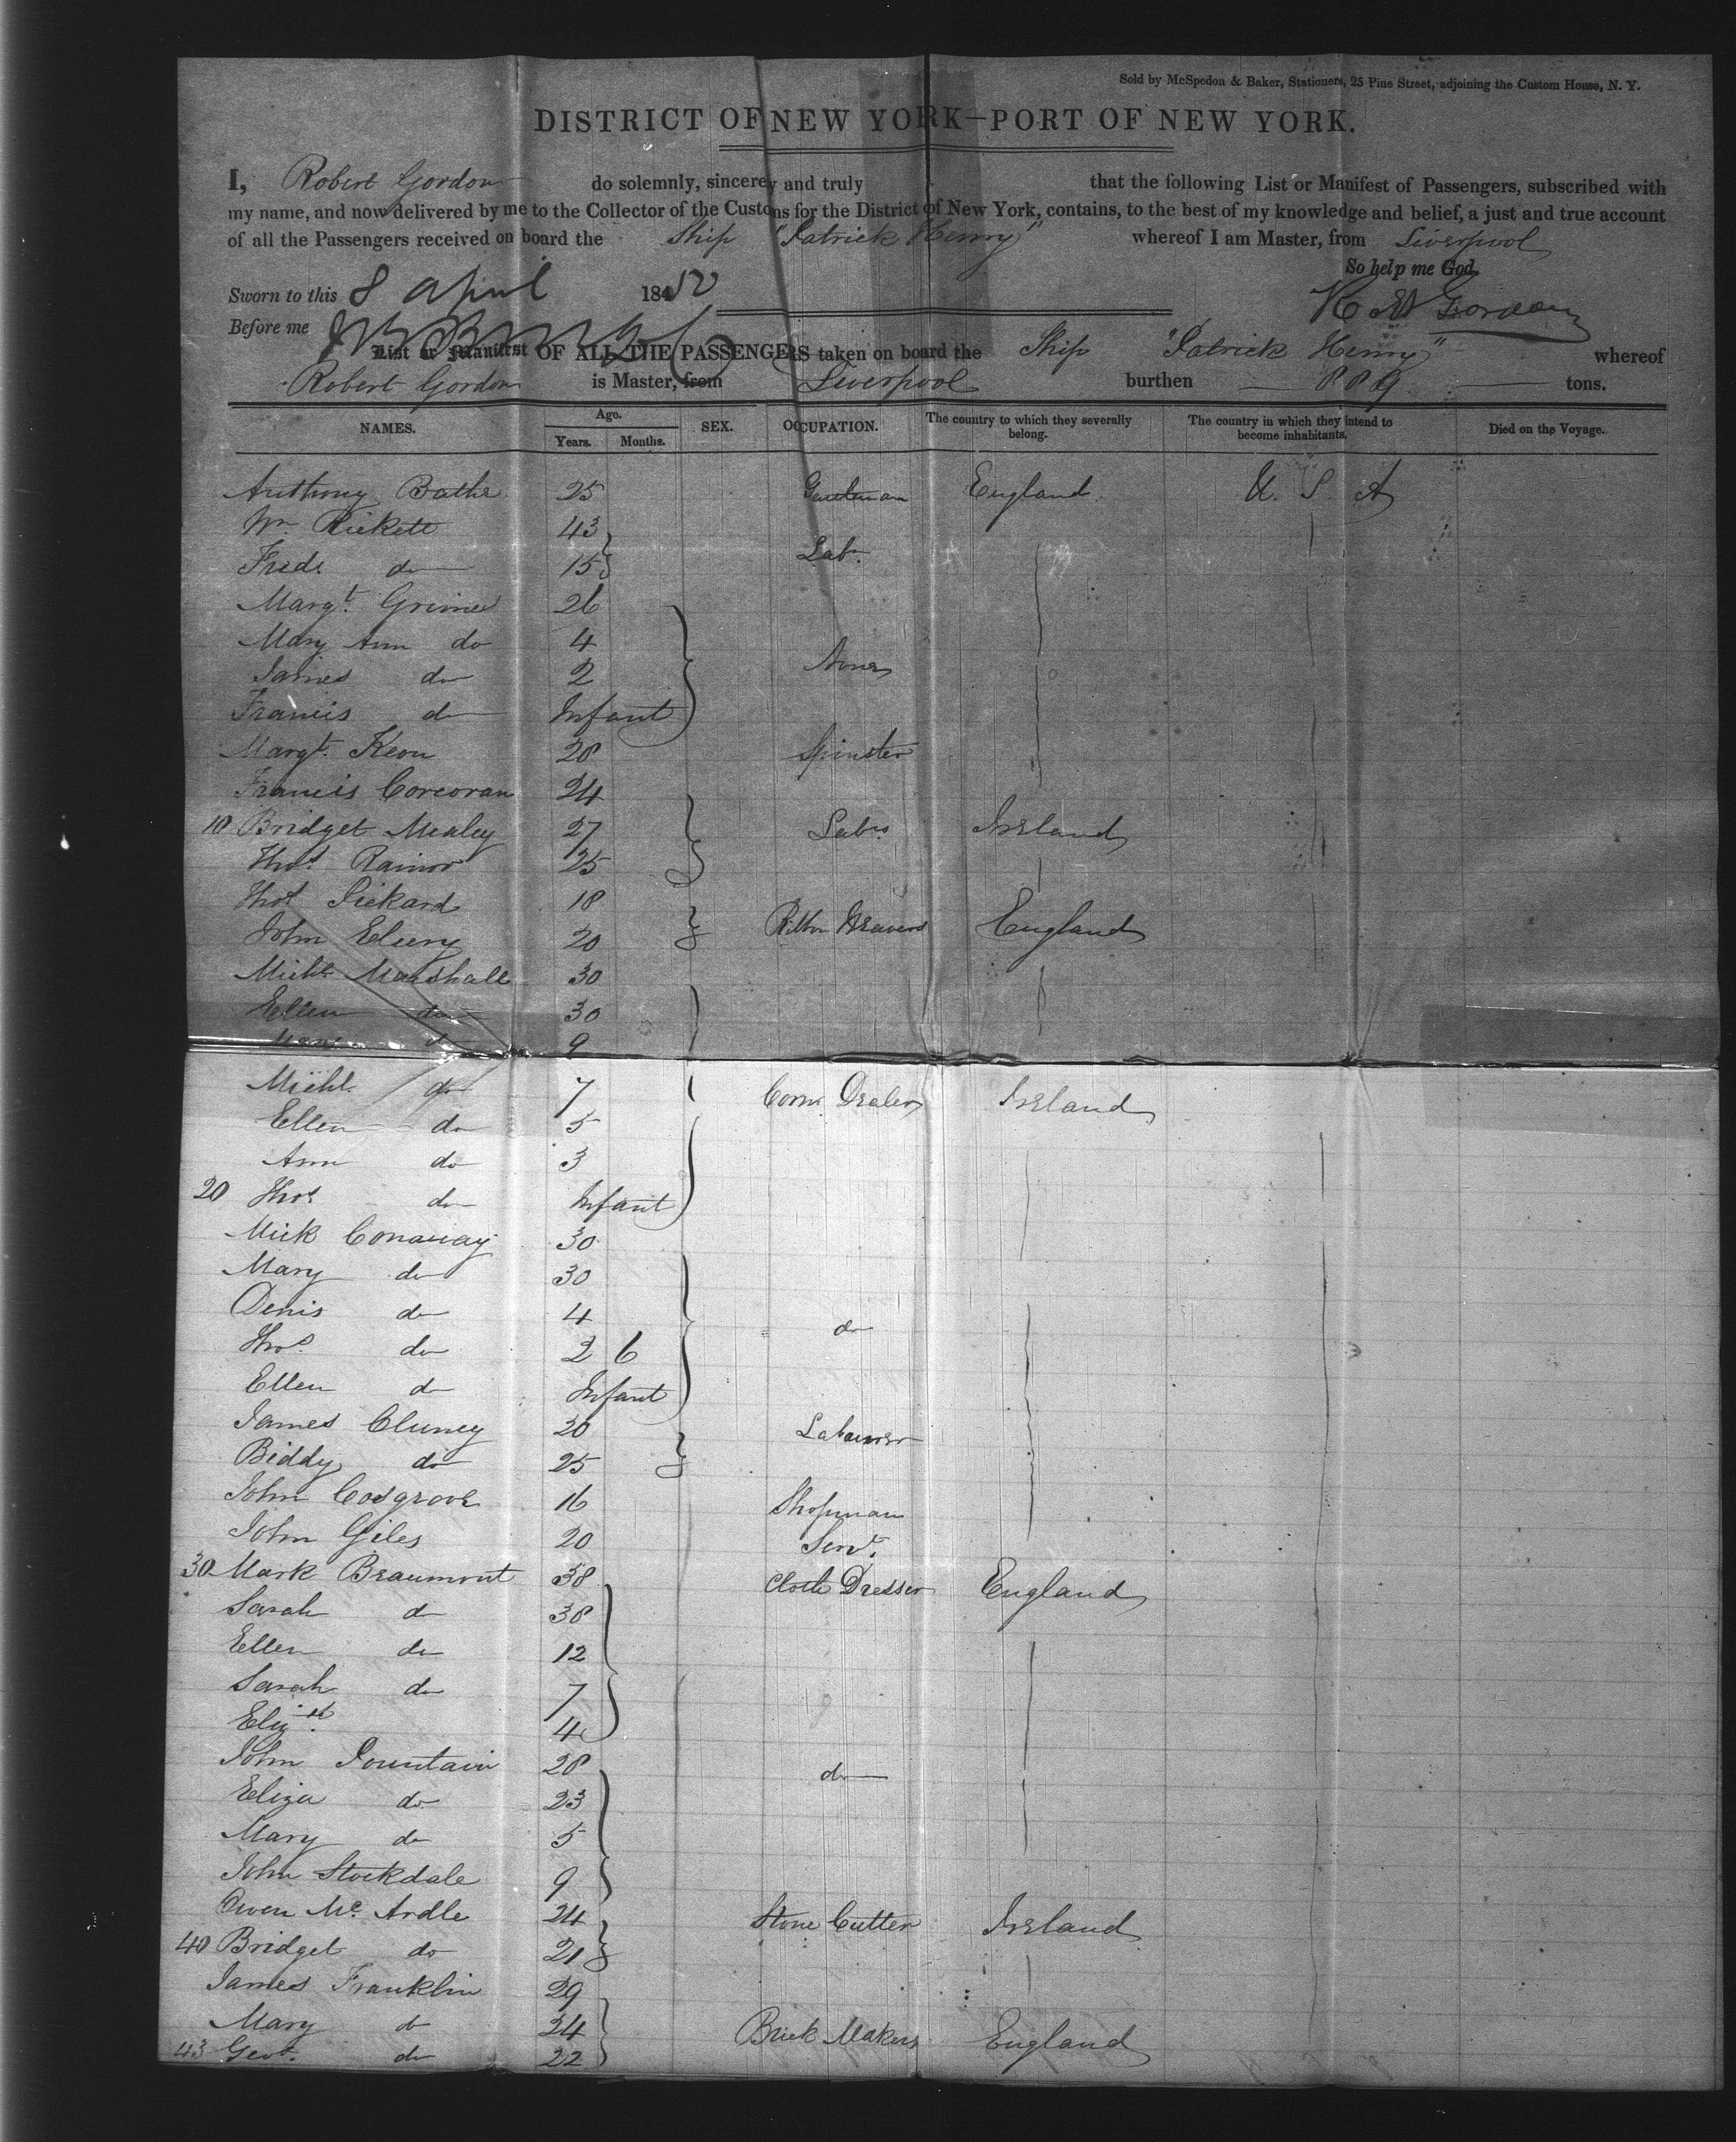 Sold by McSpedon & Baker, Stationers, 25 Pine Street, adjoining the Custom House, N. Y.
DISTRICT OF NEW YORK—PORT OF NEW YORK.
I, Robert Gordon do solemnly, sincerey and truly that the following List or Manifest of Passengers, subscribed with
my name, and now delivered by me to the Collector of the Customs for the District of New York, contains, to the best of my knowledge and belief, a just and true account
of all the Passengers received on board the Ship "Patrick Henry" whereof I am Master, from Liverpool
So help me God.
Sworn to this 8 April 1850
Before me
Gordon
List or Manifest OF ALL THE PASSENGERS taken on board the Ship "Patrick Henry" whereof
Robert Gordon is Master, from Liverpool burthen tons.
NAMES. Age. Years. Months. SEX. OCCUPATION. The country to which they severally belong. The country in which they intend to become inhabitants. Died on the Voyage.
Anthony Bathe 25 Gentleman England U. S. A
Wm Rickett 43
Fredk do 15 Labr.
Margt. Grimes 26
Mary Ann do 4
James do 2 None
Francis do Infant
Margt. Keon 28 Spinster
Francis Corcoran 24
10 Bridget Mealey 27 Labrs Ireland
Thos Rainor 25
Thos Pickard 18
John Eleery 20 Ribbon Weavers England
Michl Marshall 30
Ellen do 30
Mary do 9
Michl. do 7 Corn Dealer Ireland
Ellen do 5
Ann do 3
20 Thos do Infant
Mick Conaway 30
Mary do 30
Denis do 4
Thos. do 2 6 do
Ellen do Infant
James Cluney 20 Labourer
Biddy do 25
John Cosgrove 16 Shopman
John Giles 20 Servt.
30 Mark Beaumont 38 Cloth Dresser England
Sarah do 38
Ellen do 12
Sarah do 7
Elizth. 4
John Fountain 28 do
Eliza do 23
Mary do 5
John Stockdale 9
Owen Mc. Ardle 24 Stone Cutter Ireland
40 Bridget do 21
James Franklin 29
Mary do 24 Brick Makers England
43 Geo. do 22